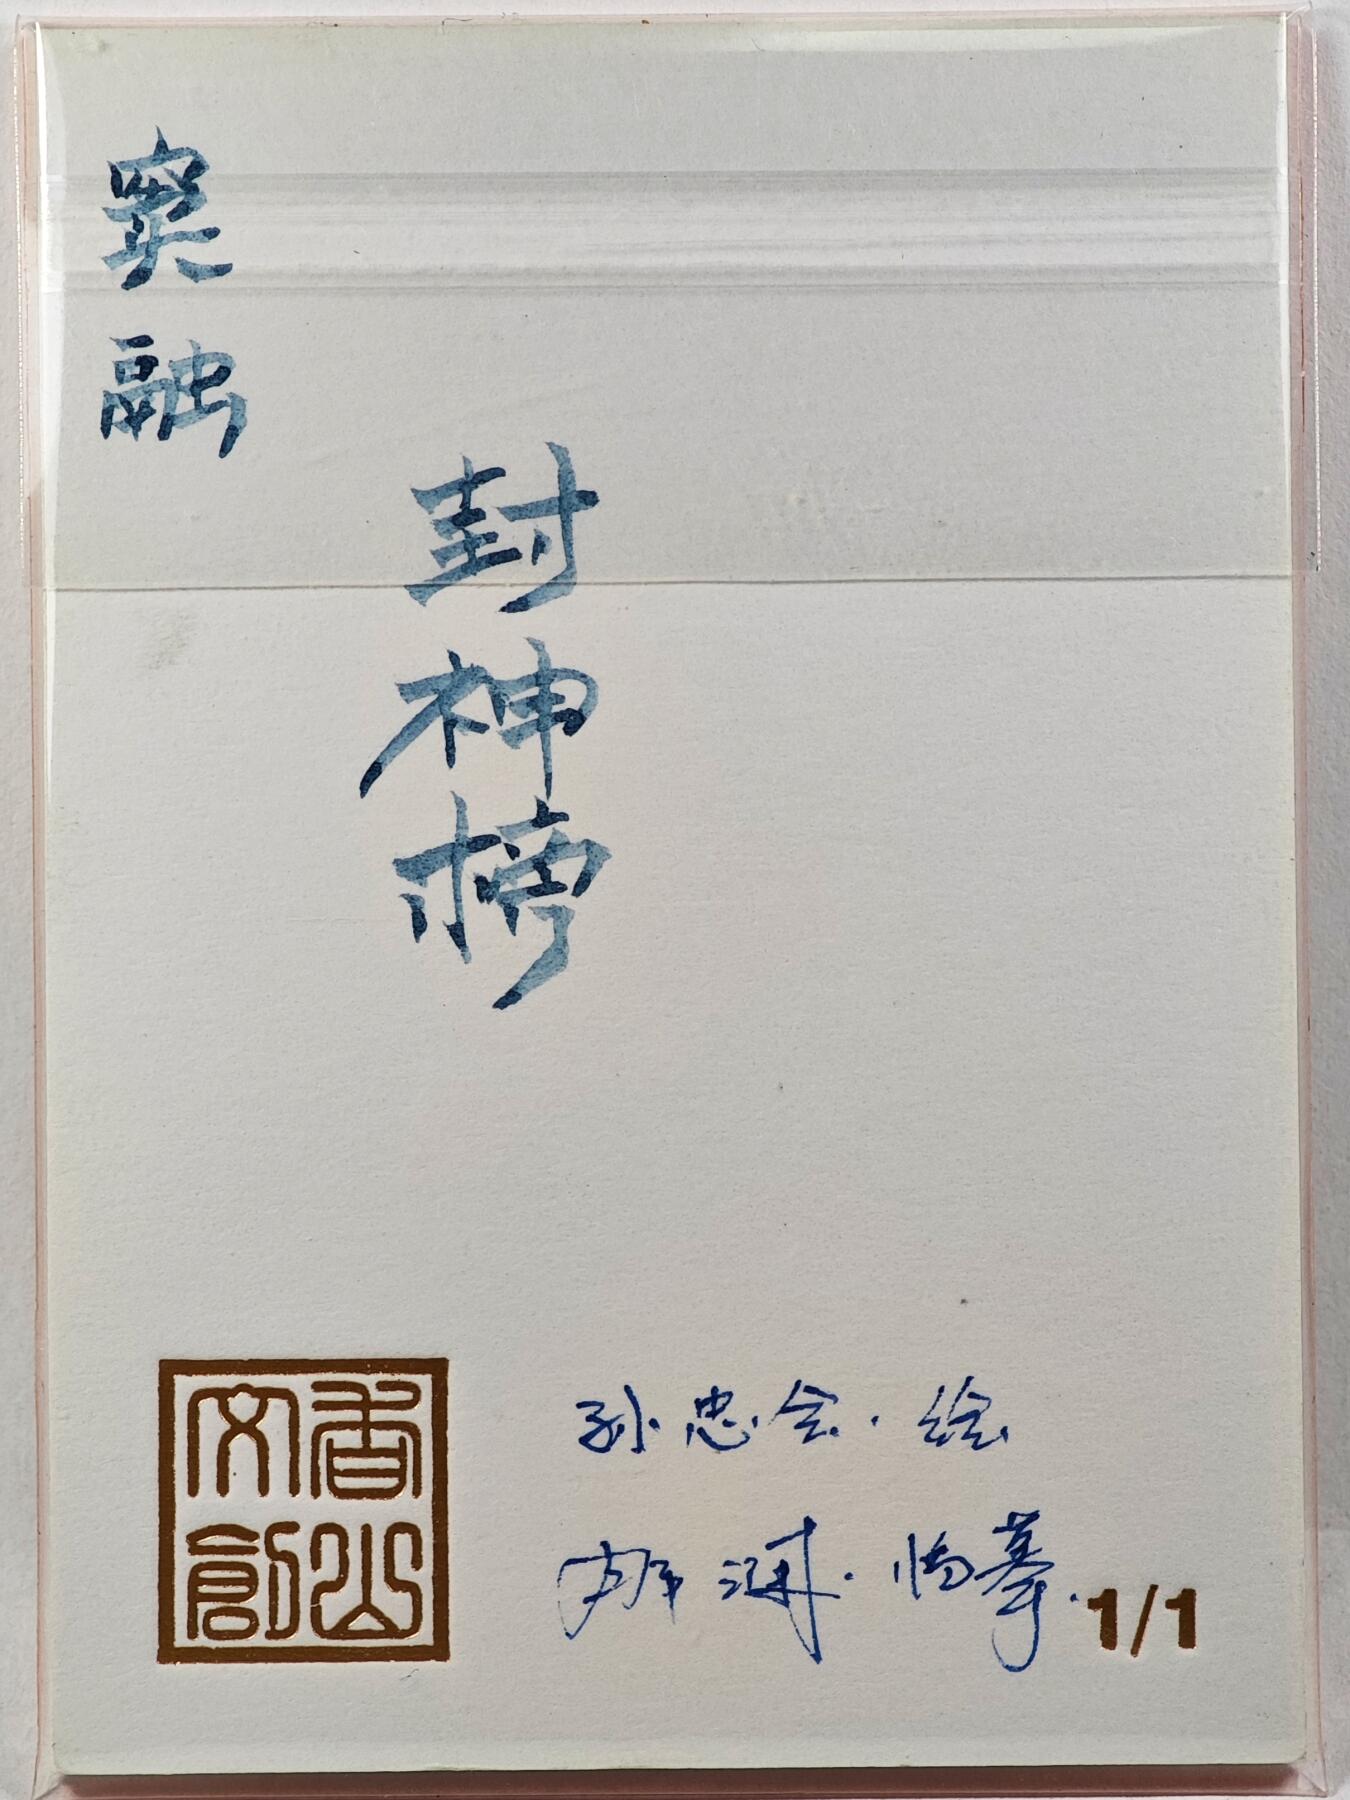 窦融
封神榜
香山
文創
孙忠会·绘
临摹
1/1